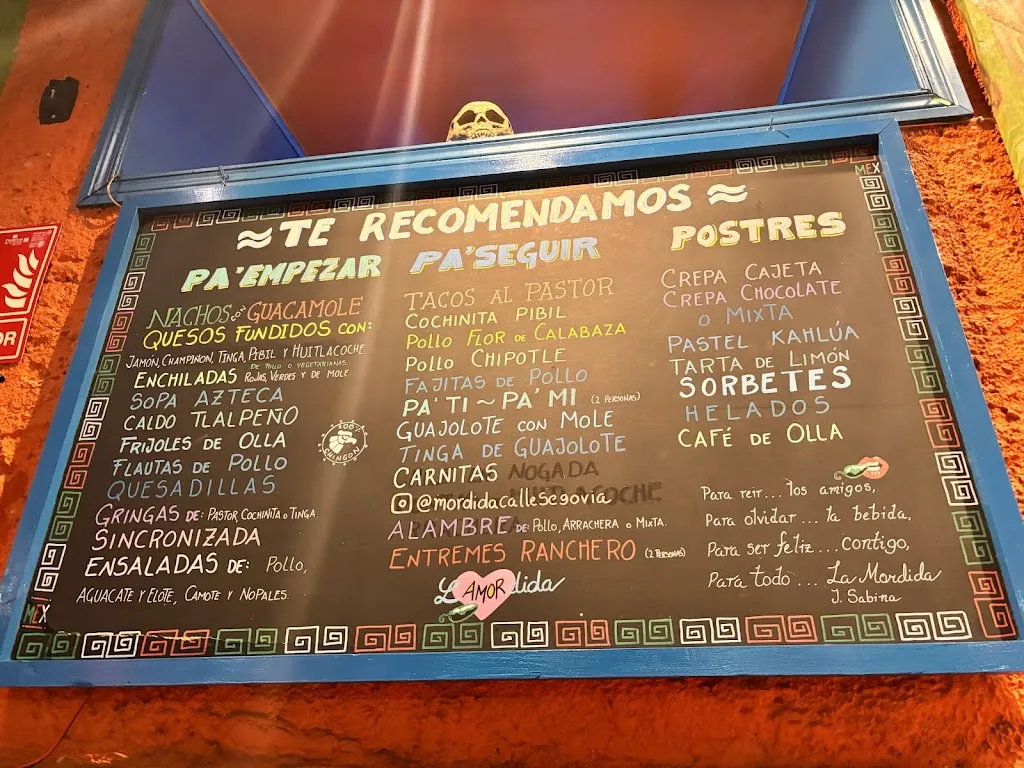 MEX
≈ TE RECOMENDAMOS ≈
PA'EMPEZAR
NACHOS CON GUACAMOLE
QUESOS FUNDIDOS CON:
JAMÓN, CHAMPIÑON, TINGA, PIBIL Y HUITLACOCHE
DE POLLO O VEGETARIANAS.
ENCHILADAS ROJAS, VERDES Y DE MOLE
SOPA AZTECA
CALDO TLALPEÑO
FRIJOLES DE OLLA
FLAUTAS DE POLLO
QUESADILLAS
GRINGAS DE: PASTOR, COCHINITA O TINGA.
SINCRONIZADA
ENSALADAS DE: POLLO,
AGUACATE Y ELOTE, CAMOTE Y NOPALES.
CHINGON
MEX
PA'SEGUIR
TACOS AL PASTOR
COCHINITA PIBIL
POLLO FLOR DE CALABAZA
POLLO CHIPOTLE
FAJITAS DE POLLO
PA' TI ~ PA' MI (2 PERSONAS)
GUAJOLOTE CON MOLE
TINGA DE GUAJOLOTE
CARNITAS NOGADA
@mordidacallesegovia
ALAMBRE DE: POLLO, ARRACHERA O MIXTA.
ENTREMES RANCHERO (2 PERSONAS)
AMOR
POSTRES
CREPA CAJETA
CREPA CHOCOLATE
O MIXTA
PASTEL KAHLÚA
TARTA DE LIMÓN
SORBETES
HELADOS
CAFÉ DE OLLA
Para reir... los amigos,
Para olvidar... la bebida,
Para ser feliz... contigo,
Para todo... La Mordida
J. Sabina